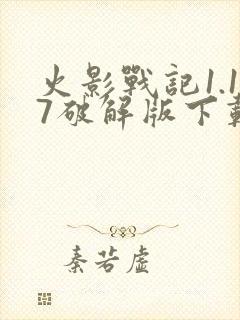 火影戰記1.1
7破解版下載
秦若虛